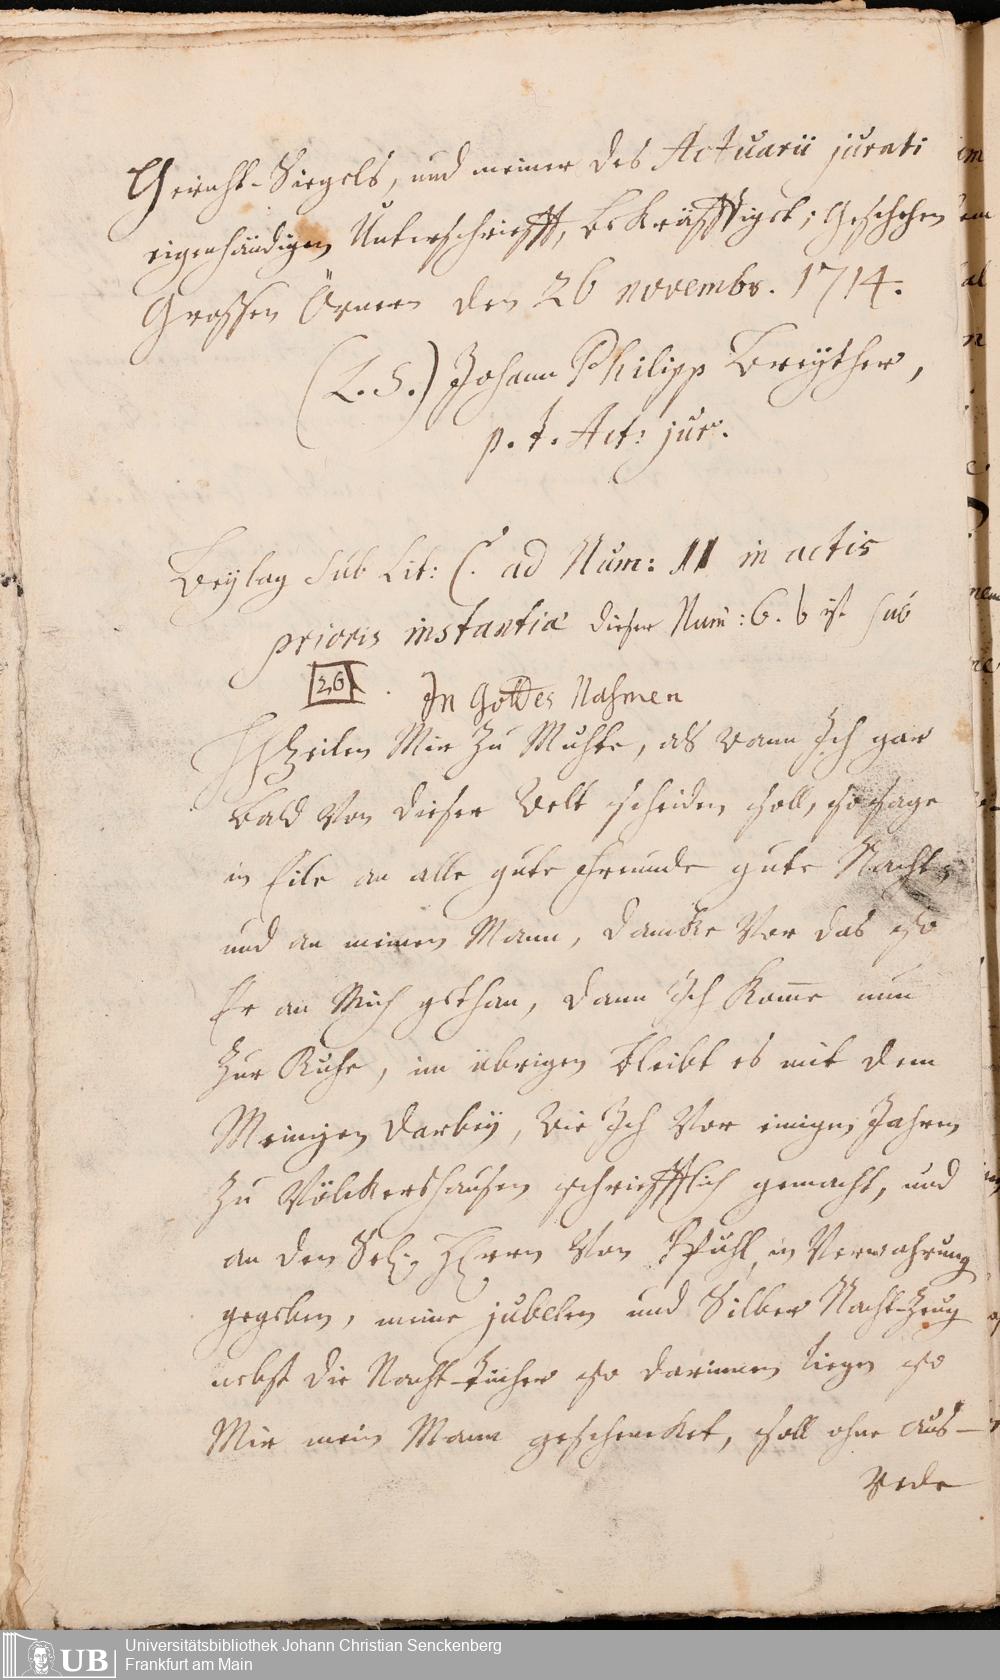 Gericht-Siegels, und meiner des Actuarii jurati
eigenhändigen Unterschriefft, bekräfftiget; Geschehen
Grossen Örnern den 26 novembr. 1714.
(L. S.) Johann Philipp Breyther,
p. t. Act: jur.
Beylag sub Lit: C. ad Num: 11 in actis
prioris instantiæ dieser Num: 6. b ist sub
26. In Gottes Nahmen
zeilen Mir zu Muhte, als wann Ich gar
bald von dieser Welt scheiden soll, so sage
in Eile an alle gute Freunde gute Nacht,
und an meinen Mann, dancke vor das so
Er an Mich gethan, dann Ich komme nun
zur Ruhe, im übrigen bleibt es mit dem
Meinigen darbey, wie Ich vor einigen Jahren
zu Völckershausen schriefftlich gemacht, und
an den Sel: Herrn von Pfuhl, in Verwahrung
gegeben, meine jubelen und Silber Nacht-Zeug
nebst die Nacht-tücher so darinnen liegen so
Mir mein Mann geschencket, soll ohne Aus-
rede
UB
Universitätsbibliothek Johann Christian Senckenberg
Frankfurt am Main